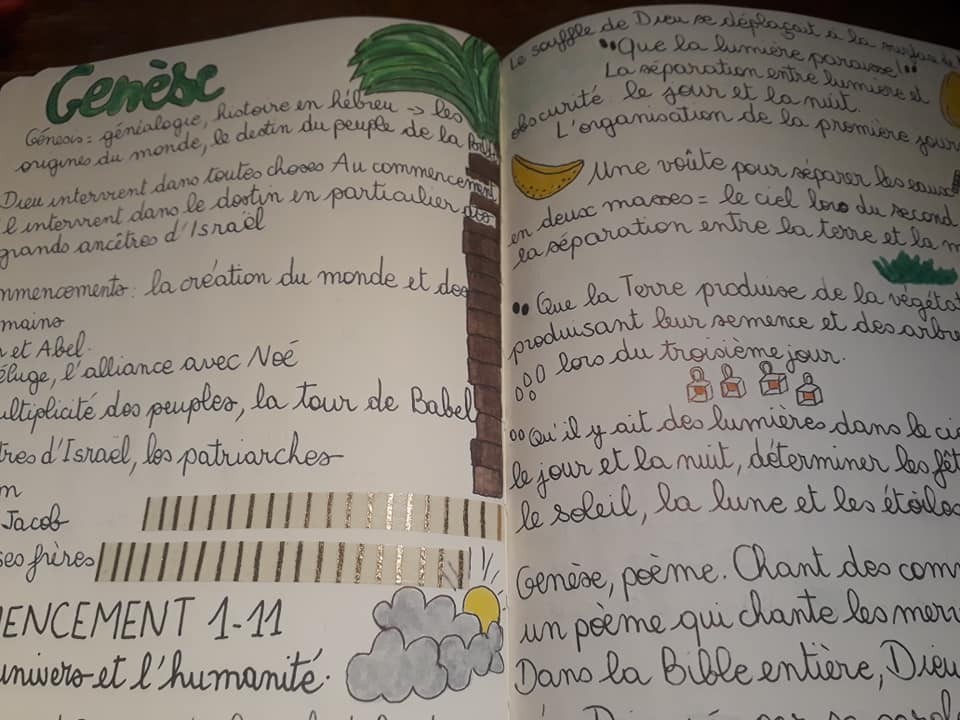 Genèse
Génesis = généalogie, histoire en hébreu → les
origines du monde, le destin du peuple de la
Dieu intervient dans toutes choses Au commencement
il intervient dans le destin en particulier des
grands ancêtres d'Israël
mmencements: la création du monde et des
mains
et Abel.
éluge, l'alliance avec Noé
ultiplicité des peuples, la tour de Babel
tres d'Israël, les patriarches
m
Jacob
ses frères
ENCEMENT 1-11
univers et l'humanité.
Le souffle de Dieu se déplaçait à la
"Que la lumière paraisse!"
La séparation entre lumière et
obscurité le jour et la nuit.
L'organisation de la première jour
Une voûte pour séparer les eaux
en deux masses = le ciel lors du second
la séparation entre la terre et la m
"Que la Terre produise de la végéta
produisant leur semence et des arbre
lors du troisième jour.
"Qu'il y ait des lumières dans le cie
le jour et la nuit, déterminer les fêt
le soleil, la lune et les étoiles
Genèse, poème. Chant des com
un poème qui chante les mer
Dans la Bible entière, Dieu